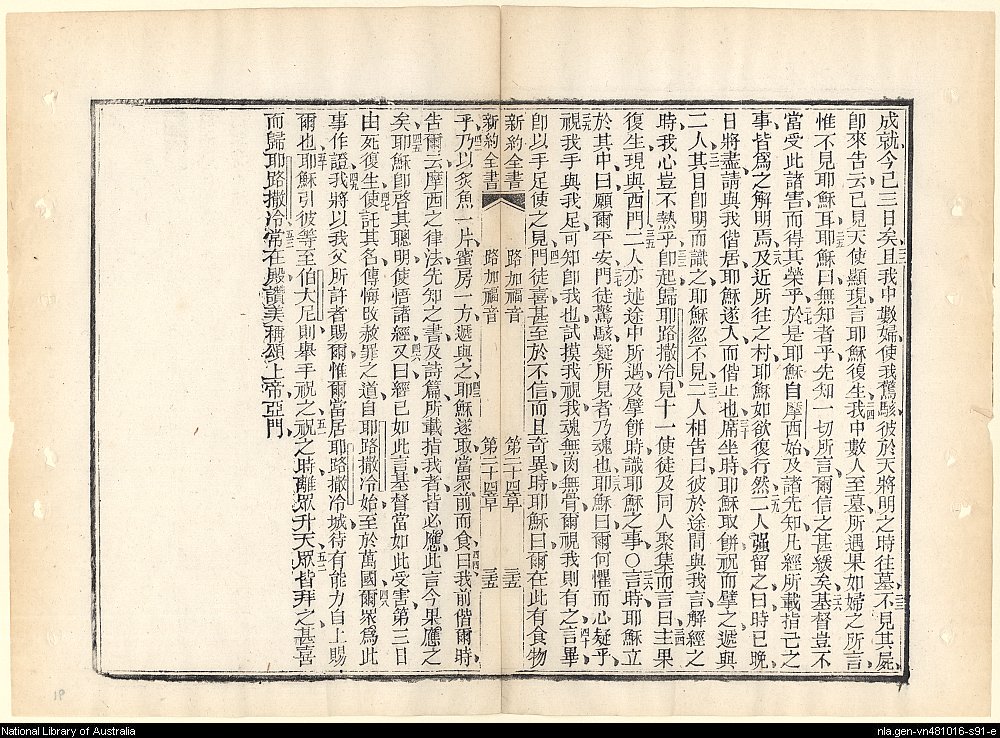 成就今已三日矣且我中數婦使我驚駭彼於天將明之時往墓不見其屍
二二
二三
即來告云已見天使顯現言耶穌復生我中數人至墓所遇果如婦之所言
二四
惟不見耶穌耳耶穌曰無知者乎先知一切所言爾信之甚緩矣基督豈不
二五
二六
當受此諸害而得其榮乎於是耶穌自摩西始及諸先知凡經所載指己之
二七
事皆爲之解明焉及近所往之村耶穌如欲復行然二人强留之曰時已晚
二八
二九
日將盡請與我偕居耶穌遂入而偕止也席坐時耶穌取餅祝而擘之遞與
三十
二人其目即明而識之耶穌忽不見二人相告曰彼於途間與我言解經之
三一
三二
時我心豈不熱乎即起歸耶路撒冷見十一使徒及同人聚集而言曰主果
三三
三四
復生現與西門二人亦述途中所遇及擘餅時識耶穌之事〇言時耶穌立
三五
三六
於其中曰願爾平安門徒驚駭疑所見者乃魂也耶穌曰爾何懼而心疑乎
三七
三八
視我手與我足可知即我也試摸我視我魂無肉無骨爾視我則有之言畢
三九
四十
即以手足使之見門徒喜甚至於不信而且奇異時耶穌曰爾在此有食物
四一
新約全書 路加福音 第二十四章 三五
新約全書 路加福音 第二十四章 三五
乎乃以炙魚一片蜜房一方遞與之耶穌遂取當眾前而食曰我前偕爾時
四二
四三
四四
告爾云摩西之律法先知之書及詩篇所載指我者皆必應此言今果應之
矣耶穌即啓其聰明使悟諸經又曰經已如此言基督當如此受害第三日
四五
四六
由死復生使託其名傳悔改赦罪之道自耶路撒冷始至於萬國爾眾爲此
四七
四八
事作證我將以我父所許者賜爾惟爾當居耶路撒冷城待有能力自上賜
四九
爾也耶穌引彼等至伯大尼則舉手祝之祝之時離眾升天眾皆拜之甚喜
五十
五一
五二
而歸耶路撒冷常在殿讚美稱頌上帝亞們
五三
18
National Library of Australia
nla.gen-vn481016-s91-e